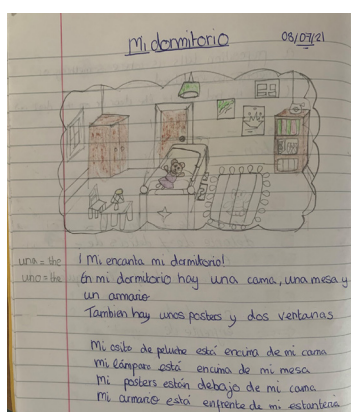 Mi dormitorio
08/07/21
una = the
uno = the
¡Mi encanta mi dormitorio!
En mi dormitorio hay una cama, una mesa y
un armario
Tambien hay unos posters y dos ventanas
Mi osito de peluche está encima de mi cama
mi lámpara está encima de mi mesa
Mi posters están debajo de mi cama
Mi armario está enfrente de mi estantería